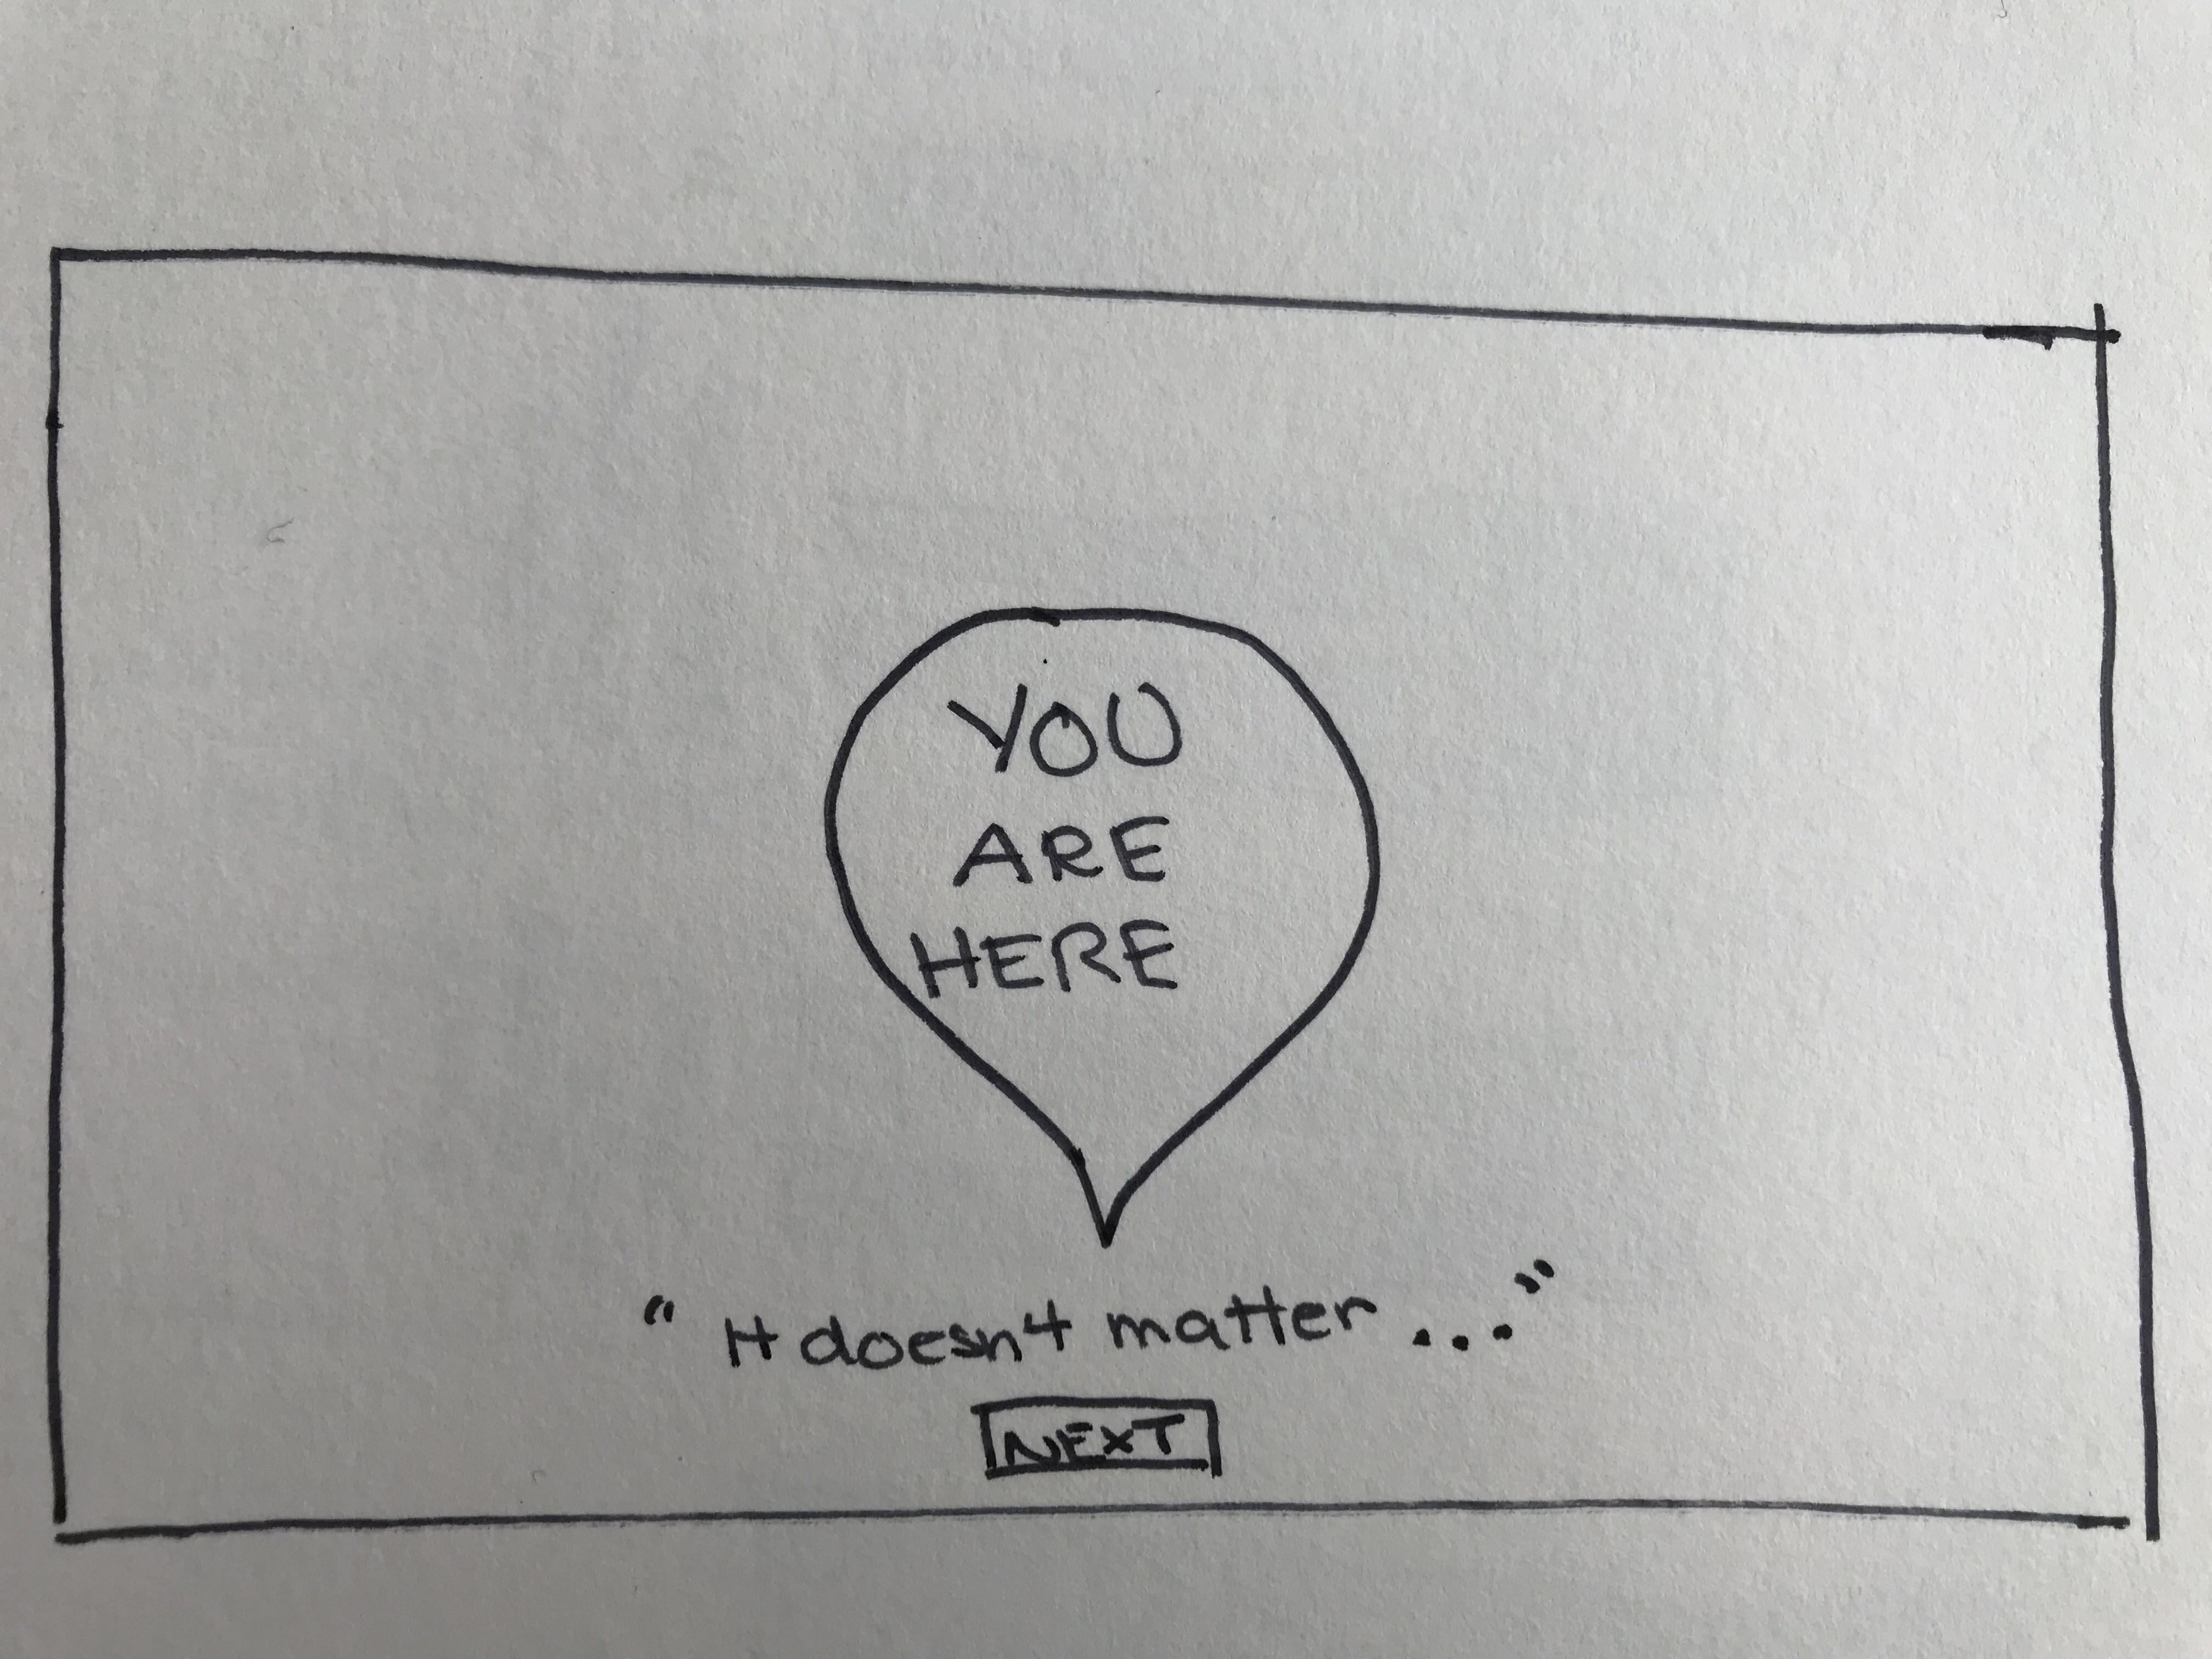 YOU
ARE
HERE
" It doesn't matter ..."
NEXT